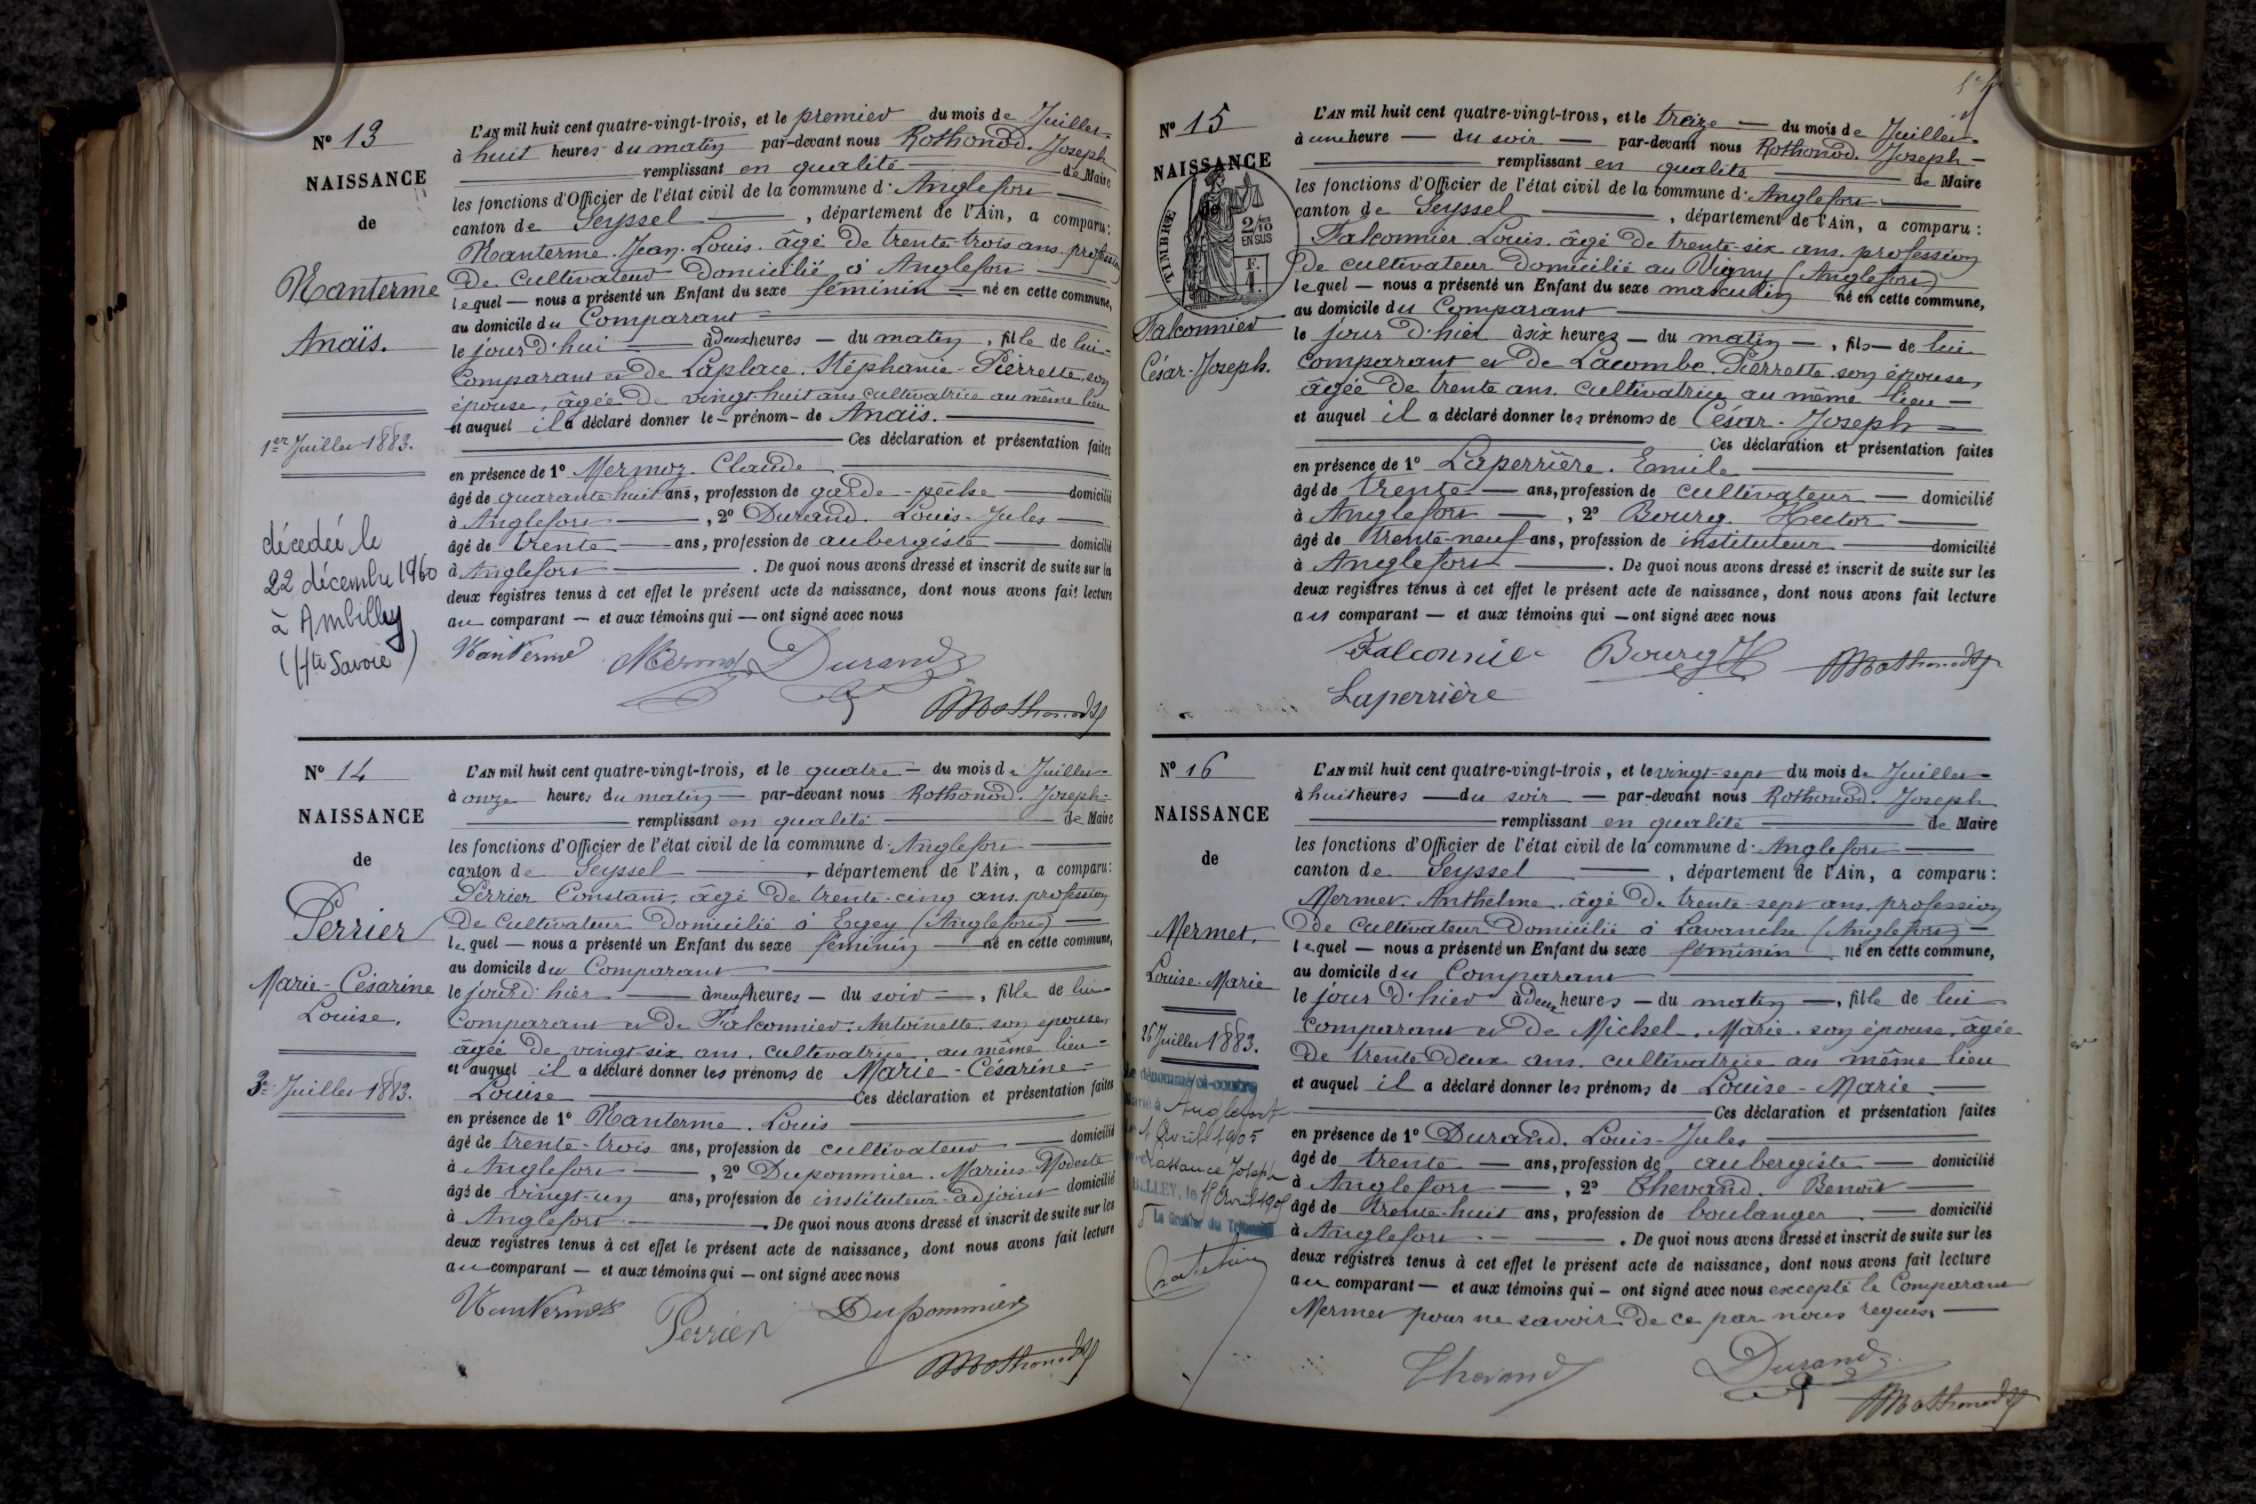 N° 13
NAISSANCE
de
Nanterme
Anaïs.
1er Juillet 1883.
décédée le
22 décembre 1960
à Ambilly
(Hte Savoie)
L'AN mil huit cent quatre-vingt-trois, et le premier du mois de Juillet
à huit heures du matin par-devant nous Rothonod. Joseph
remplissant en qualité de Maire
les fonctions d'Officier de l'état civil de la commune d'Anglefort
canton de Seyssel, département de l'Ain, a comparu:
Nanterme. Jean-Louis. âgé de trente-trois ans. profession
de cultivateur domicilié à Anglefort
lequel nous a présenté un Enfant du sexe féminin né en cette commune,
au domicile du Comparant
le jour d'hui à deux heures du matin, fille de lui
comparant et de Laplace. Stéphanie-Pierrette. son
épouse, âgée de vingt-huit ans cultivatrice au même lieu
et auquel il a déclaré donner le prénom de Anaïs.
Ces déclaration et présentation faites
en présence de 1° Mermoz. Claude
âgé de quarante huit ans, profession de garde-pêche domicilié
à Anglefort, 2° Durand. Louis-Jules
âgé de trente ans, profession de aubergiste domicilié
à Anglefort. De quoi nous avons dressé et inscrit de suite sur la
deux registres tenus à cet effet le présent acte de naissance, dont nous avons fait lecture
au comparant et aux témoins qui ont signé avec nous
Nanterme Mermoz Durand
Rothonod
N° 14
NAISSANCE
de
Perrier
Marie-Césarine
Louise.
3 Juillet 1883.
L'AN mil huit cent quatre-vingt-trois, et le quatre du mois de Juillet
à onze heures du matin par-devant nous Rothonod. Joseph
remplissant en qualité de Maire
les fonctions d'Officier de l'état civil de la commune d'Anglefort
canton de Seyssel département de l'Ain, a comparu:
Perrier Constant. âgé de trente-cinq ans. profession
de cultivateur domicilié à Eyey (Anglefort)
lequel nous a présenté un Enfant du sexe féminin né en cette commune,
au domicile du Comparant
le jour d'hier à neuf heures du soir, fille de lui
comparant et de Falconnier. Antoinette. son épouse,
âgée de vingt-six ans. cultivatrice. au même lieu
et auquel il a déclaré donner les prénoms de Marie-Césarine-
Louise Ces déclaration et présentation faites
en présence de 1° Nanterme. Louis
âgé de trente-trois ans, profession de cultivateur domicilié
à Anglefort, 2° Dupommier. Marius-Modeste
âgé de vingt-un ans, profession de instituteur-adjoint domicilié
à Anglefort. De quoi nous avons dressé et inscrit de suite sur les
deux registres tenus à cet effet le présent acte de naissance, dont nous avons fait lecture
au comparant et aux témoins qui ont signé avec nous
Nanterme Perrier Dupommier
Rothonod
N° 15
NAISSANCE
de
TIMBRE
2/10
EN SUS
Falconnier
César-Joseph.
L'AN mil huit cent quatre-vingt-trois, et le treize du mois de Juillet
à une heure du soir par-devant nous Rothonod. Joseph
remplissant en qualité de Maire
les fonctions d'Officier de l'état civil de la commune d'Anglefort
canton de Seyssel, département de l'Ain, a comparu:
Falconnier. Louis. âgé de trente-six ans. profession
de cultivateur domicilié au Vigny (Anglefort)
lequel nous a présenté un Enfant du sexe masculin né en cette commune,
au domicile du Comparant
le jour d'hier à six heures du matin, fils de lui
comparant et de Lacombe. Pierrette son épouse,
âgée de trente ans. cultivatrice au même lieu
et auquel il a déclaré donner les prénoms de César-Joseph
Ces déclaration et présentation faites
en présence de 1° Laperrière. Emile
âgé de trente ans, profession de cultivateur domicilié
à Anglefort, 2° Bourg. Hector
âgé de trente-neuf ans, profession de instituteur domicilié
à Anglefort. De quoi nous avons dressé et inscrit de suite sur les
deux registres tenus à cet effet le présent acte de naissance, dont nous avons fait lecture
au comparant et aux témoins qui ont signé avec nous
Falconnier Bourg H Rothonod
Laperrière
N° 16
NAISSANCE
de
Mermet.
Louise-Marie
26 Juillet 1883.
dénommé ci-contre
marié à Anglefort
1 Avril 1905
Lassance Joseph
BELLEY, le Avril 1905
Le Greffier du Tribunal
L'AN mil huit cent quatre-vingt-trois, et le vingt-sept du mois de Juillet
à huit heures du soir par-devant nous Rothonod. Joseph
remplissant en qualité de Maire
les fonctions d'Officier de l'état civil de la commune d'Anglefort
canton de Seyssel, département de l'Ain, a comparu:
Mermet. Anthelme. âgé de trente-sept ans, profession
de cultivateur domicilié à Lavanche (Anglefort)
lequel nous a présenté un Enfant du sexe féminin né en cette commune,
au domicile du Comparant
le jour d'hier à deux heures du matin, fille de lui
comparant et de Michel. Marie. son épouse, âgée
de trente deux ans. cultivatrice au même lieu
et auquel il a déclaré donner les prénoms de Louise-Marie
Ces déclaration et présentation faites
en présence de 1° Durand. Louis-Jules
âgé de trente ans, profession de aubergiste domicilié
à Anglefort, 2° Thevand. Benoît
âgé de trente-huit ans, profession de boulanger domicilié
à Anglefort. De quoi nous avons dressé et inscrit de suite sur les
deux registres tenus à cet effet le présent acte de naissance, dont nous avons fait lecture
au comparant et aux témoins qui ont signé avec nous excepté le Comparant
Mermet pour ne savoir de ce par nous requis.
Thevand Durand
Rothonod